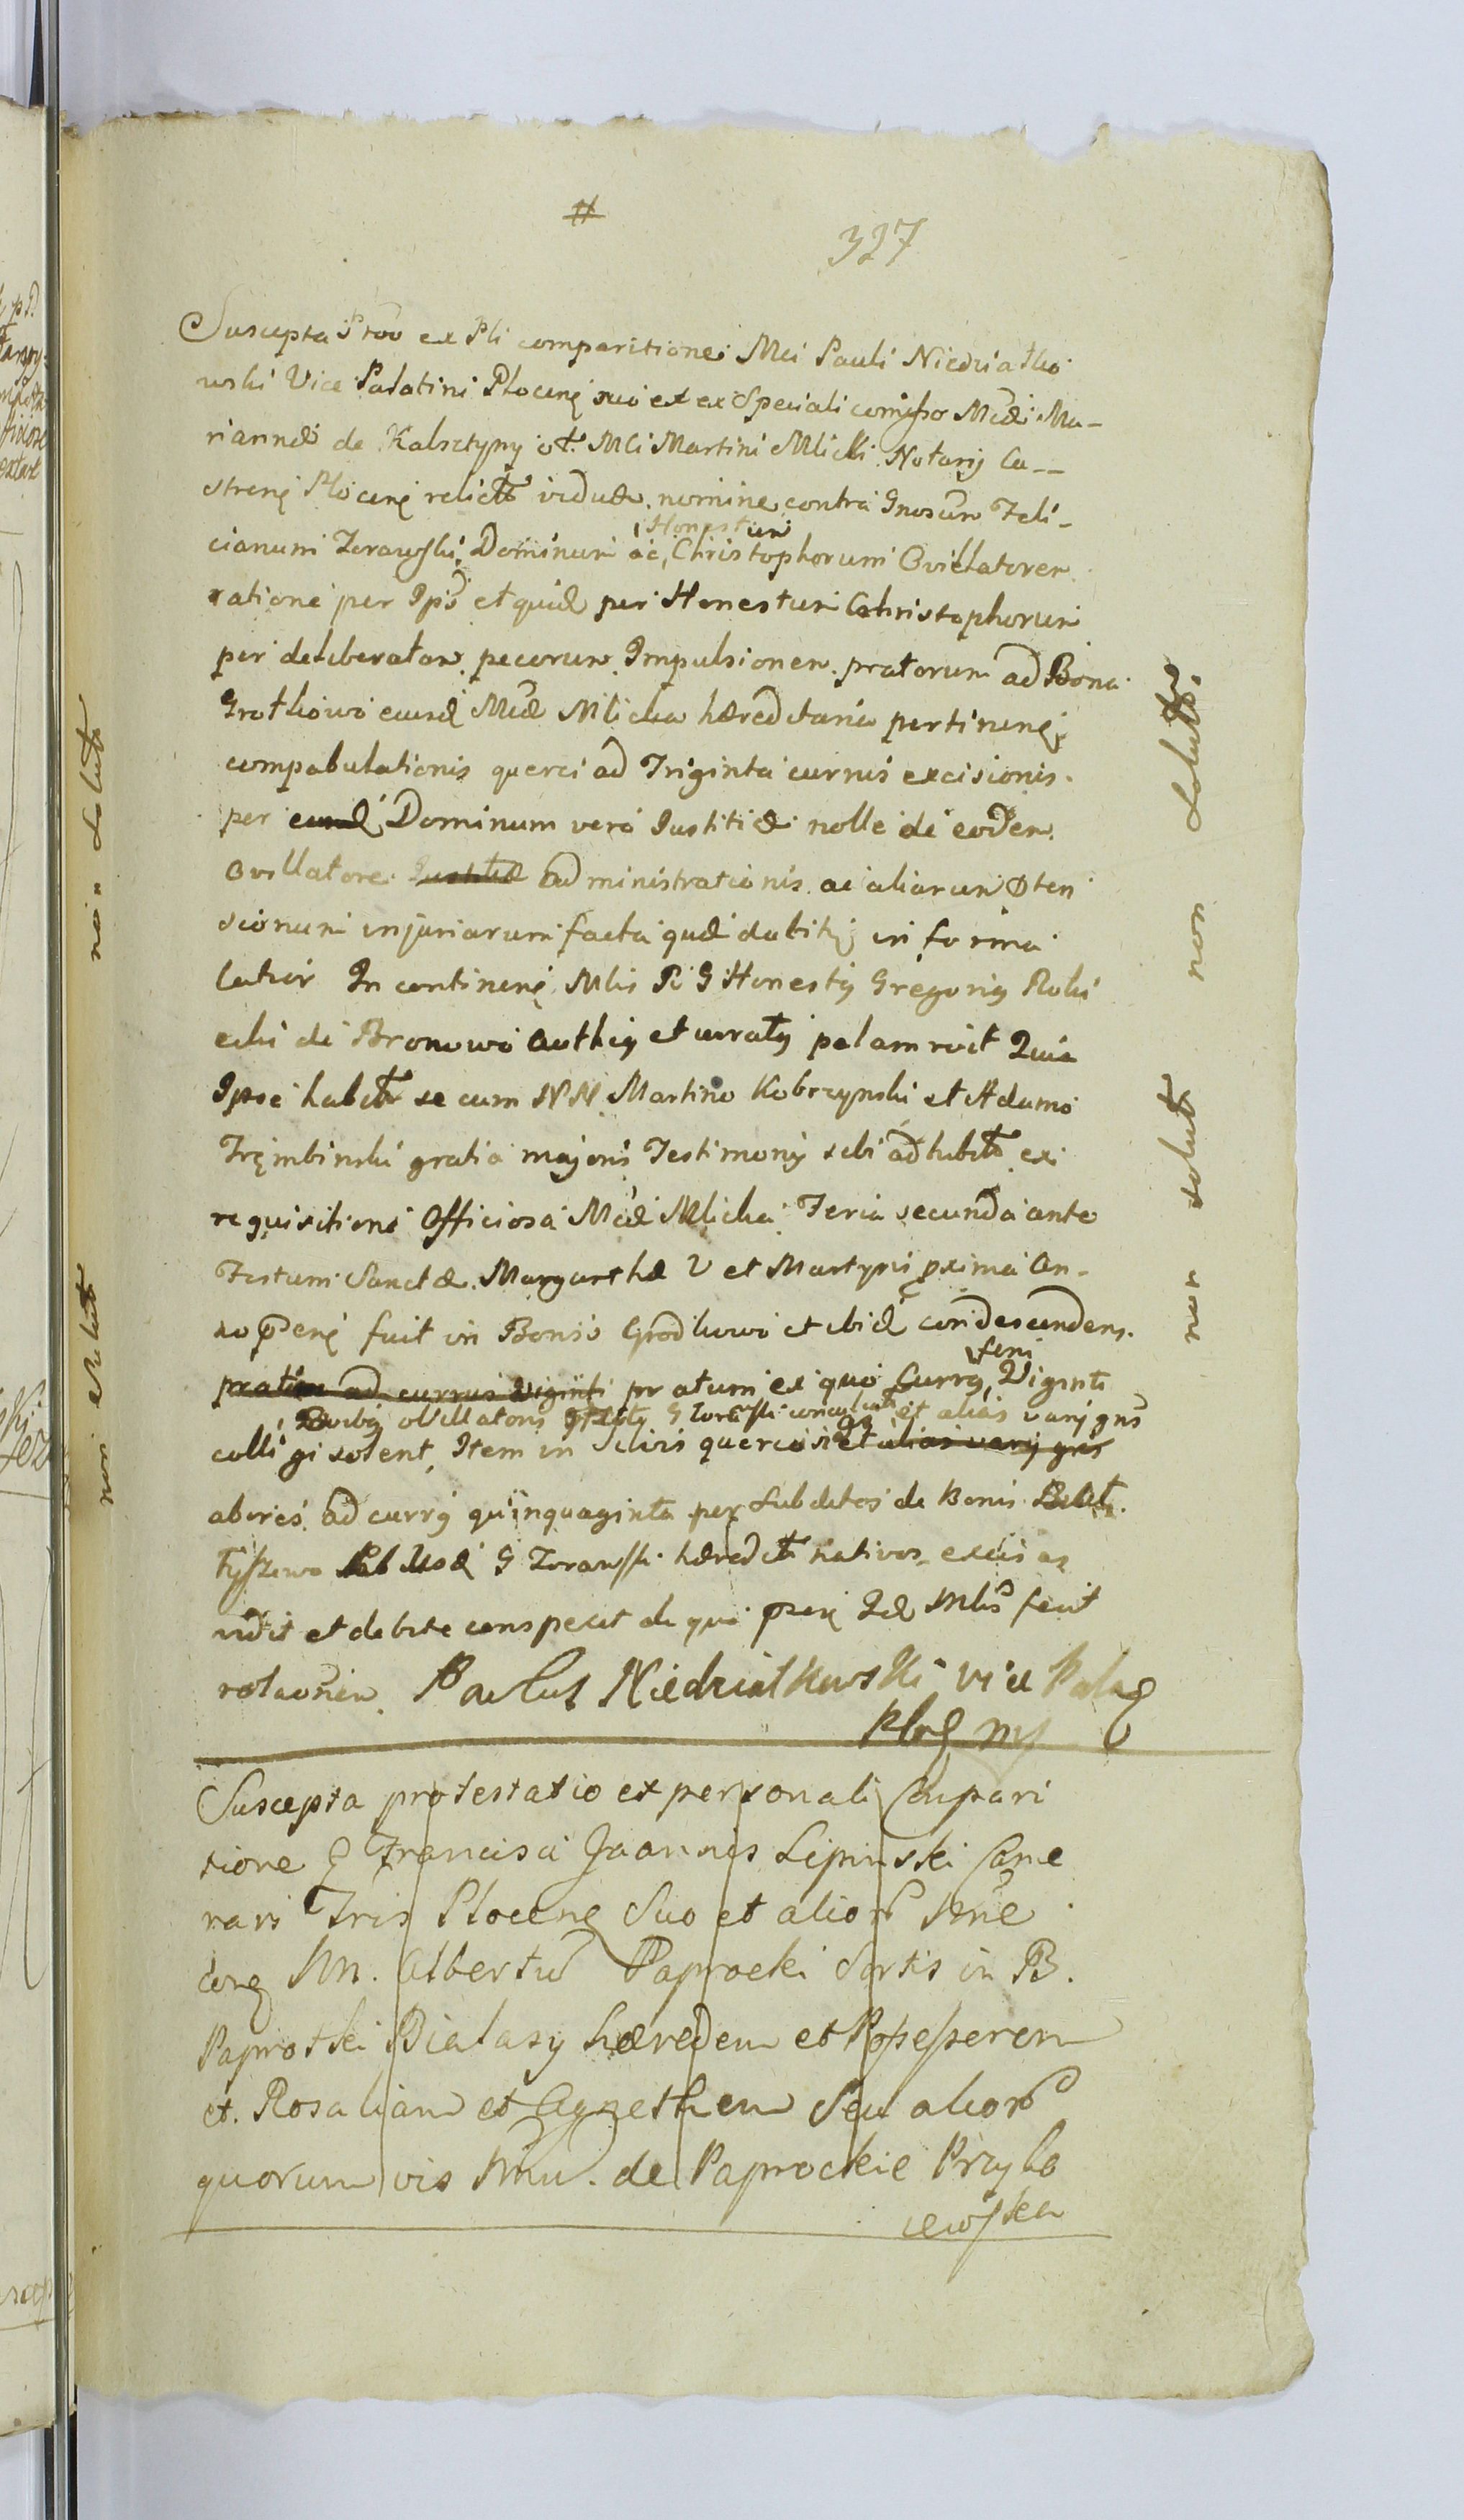 #
327
Suscepta Prõo ex Pli comparitione Mci Pauli Niedziałko
wski Vice Palatini Plocenę suo et ex Speciali comisso Mcæ Ma-
riannæ de Kalsztyny ot. Mci Martini Mlicki Notarÿ Ca--
strenę Plocenę relictæ viduæ nomine contra Gnosum Feli-
cianum Zorawski Dominum ac, Christophorum Ovillatorem
Honestum
ratione per Ips et quid per Honestum Christophorum
per deliberatam pecorum Impulsionem pratorum ad Bona
Grotkowo eiusd Mcæ Mlicka hæreditaria pertinenę
compabulationis querci ad Triginta currus excisionis
per eund Dominum vero Iustitiæ nolle de eodem
Ovillatore Iustitiæ administrationis ac aliarum Oten
sionum injuriarum facta quæ dabitę in forma
latior In continenę Mlis R G Honestÿ Gregoriÿ Roki
cki de Bronowo Authię et iuratÿ palam rcit Quia
Ipse habita se cum NN Martino Kobrzynski et Adamo
Trębinski gratia majoris Testimonÿ sibi adhibitæ ex
requisitione Officiosa Mcæ Mlicka Feria secunda ante
Festum Sanctæ Margarethæ V et Martyris proxima An-
no prenę fuit in Bonis Grodkowo et ibid condescendens
feni
pratum ad currus viginti pratum ex quo Currÿ, Viginti
Ovibÿ ovillatoris G Zorawski et alias varÿ gnis
colligi solent, Item in Silvis quercos et alias varÿ gnis
abores ad currÿ quinquaginta per Subditos de Bonis
G Zorawski hæredit nativos excisas
vidit et debite conspexit de quo prenę Id Mlis fecit
rołaonem Paulus Niedziałkowski Vice Palaę
Ploę mp
Suscepta protestatio ex personali Compari
tione G Francisci Joannis Lipinski Came
rarÿ Tris Plocenę Suo et alior nne
conę Nn. Albertum Paprocki Sortis in B.
Paprotki Białasy hæredem et Possessorem
et Rosaliam et Agnethem Seu alior
quorumvis Nnu. de Paprockie Przyby
lewska
non solut
non solut
non solut
non solut